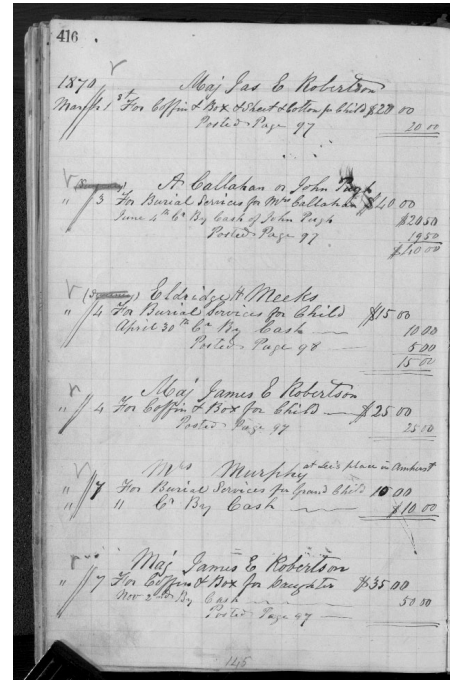 416
1870 Maj Jas E Robertson
Mar 1st For Coffin & Box & Sheet & Cotton for Child $20 00
Posted Page 97 20 00
A Callahan or John Pugh
" 3 For Burial Services for Mrs Callahan $40 00
June 4th Cr By Cash of John Pugh $20 50
Posted Page 97 19 50
$40 00
Eldridge H Meeks
" 4 For Burial Services for Child $15 00
April 30th Cr By Cash 10 00
Posted Page 98 5 00
15 00
Maj James E Robertson
" 4 For Coffin & Box for Child $25 00
Posted Page 97 25 00
Mrs Murphy at place in Amherst
" 7 For Burial Services for Grand Child 10 00
" Cr By Cash $10 00
Maj James E Robertson
" 7 For Coffin & Box for Daughter $35 00
Nov 2nd By Cash 50 00
Posted Page 97
145